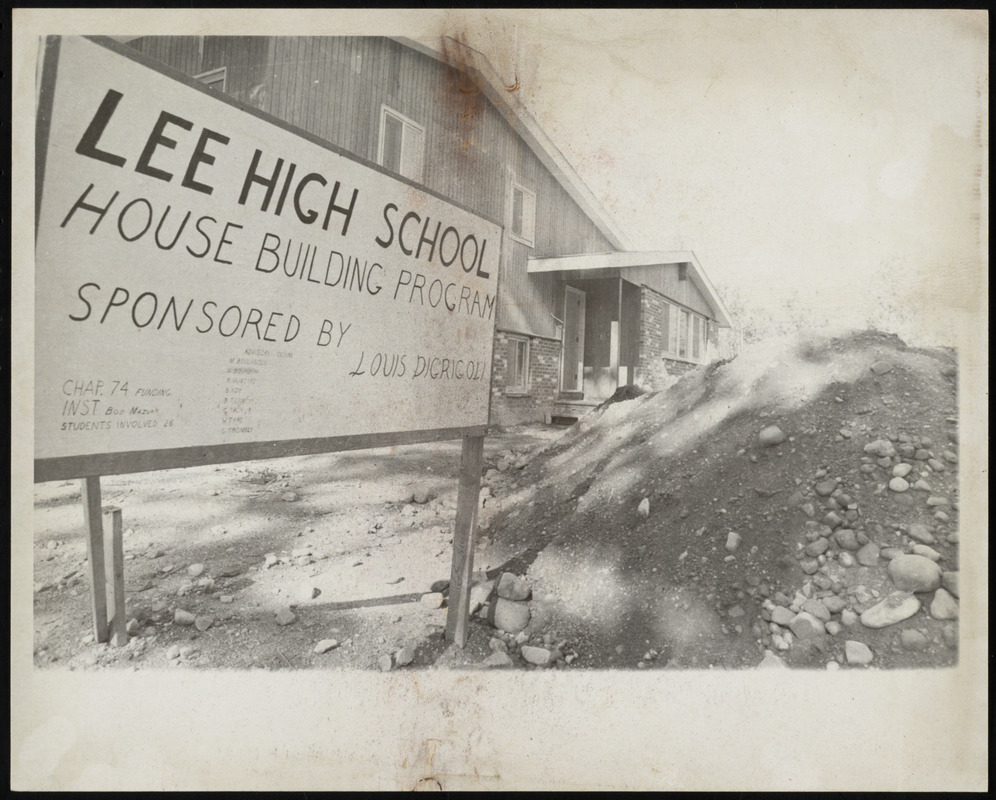 LEE HIGH SCHOOL
HOUSE BUILDING PROGRAM
SPONSORED BY
LOUIS DIGRIGOLI
CHAP. 74 FUNDING
INST. Bob
STUDENTS INVOLVED 26